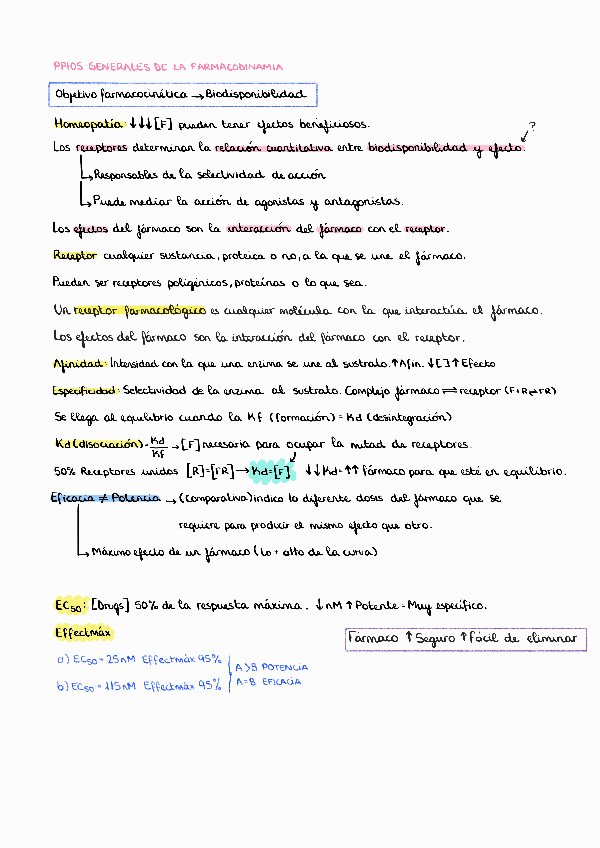 PPIOS GENERALES DE LA FARMACODINAMIA
Objetivo farmacocinética → Biodisponibilidad
Homeopatía: ↓↓↓ [F] pueden tener efectos beneficiosos.
?
Los receptores determinan la relación cuantitativa entre biodisponibilidad y efecto.
↳ Responsables de la selectividad de acción
↳ Puede mediar la acción de agonistas y antagonistas.
Los efectos del fármaco son la interacción del fármaco con el receptor.
Receptor cualquier sustancia, proteica o no, a la que se une el fármaco.
Pueden ser receptores poligínicos, proteínas o lo que sea.
Un receptor farmacológico es cualquier molécula con la que interactúa el fármaco.
Los efectos del fármaco son la interacción del fármaco con el receptor.
Afinidad: Intensidad con la que una enzima se une al sustrato. ↑Afin. ↓[ ] ↑ Efecto
Especificidad: Selectividad de la enzima al sustrato. Complejo fármaco ⇌ receptor (F+R⇌FR)
Se llega al equilibrio cuando la Kf (formación) = Kd (desintegración)
Kd (disociación) = Kd/Kf → [F] necesaria para ocupar la mitad de receptores.
50% Receptores unidos [R]=[FR] → Kd=[F] ↓↓Kd=↑↑ fármaco para que esté en equilibrio.
Eficacia ≠ Potencia → (comparativa) indica la diferente dosis del fármaco que se
requiere para producir el mismo efecto que otro.
↳ Máximo efecto de un fármaco (lo + alto de la curva)
EC50: [Drugs] 50% de la respuesta máxima. ↓nM ↑Potente = Muy específico.
Effectmáx
Fármaco ↑ Seguro ↑ Fácil de eliminar
a) EC50 = 25nM Effectmáx 95%
A>B POTENCIA
b) EC50 = 115nM Effectmáx 95%
A=B EFICACIA